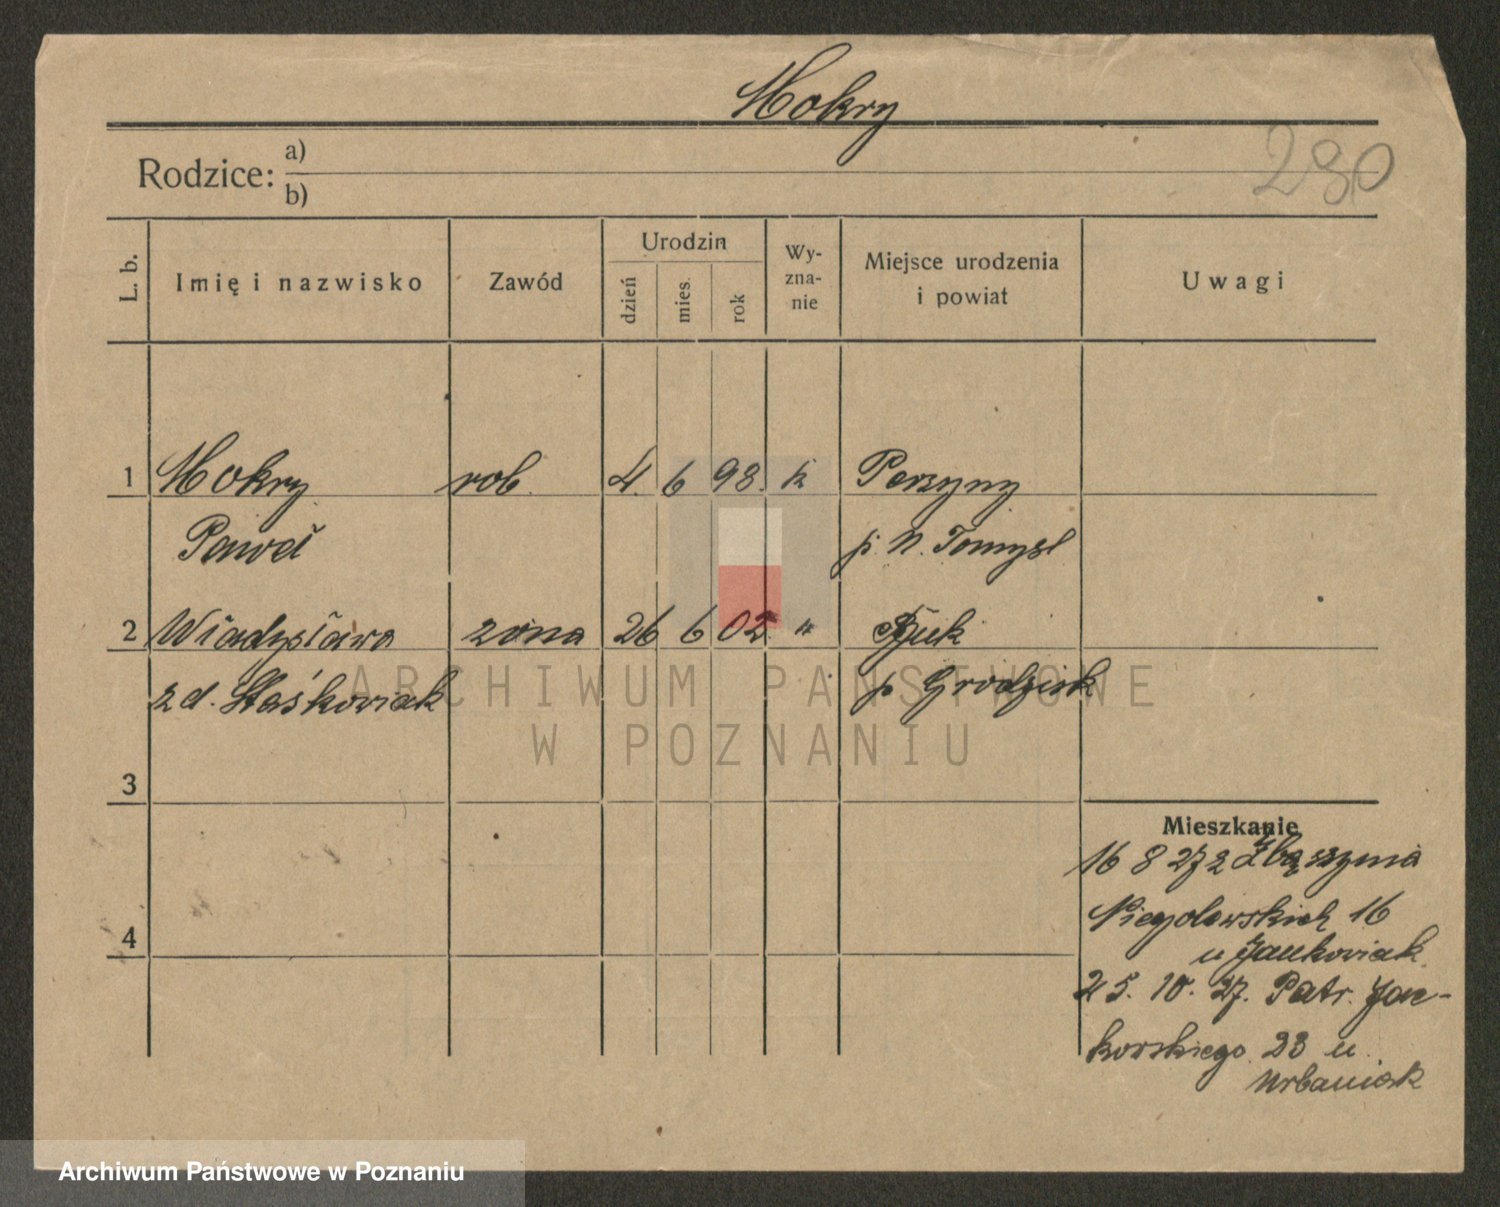 Mokry
290
Rodzice: a)
b)
L. b. Imię i nazwisko Zawód Urodzin dzień mies. rok Wy-zna-nie Miejsce urodzenia i powiat Uwagi
1 Mokry rob. 4. 6 98. k Perzyny
Paweł p. N. Tomysl
2 Władysława żona 26 6 02. " Buk
z d. Staśkowiak p Grodzisk
ARCHIWUM PAŃSTWOWE
W POZNANIU
3
Mieszkanie
16 8 27 z Zbąszynia
4 Niegolewskich 16
u Jankowiak
25. 10. 27. Patr. Jac-
kowskiego 23 u
Urbaniak
Archiwum Państwowe w Poznaniu